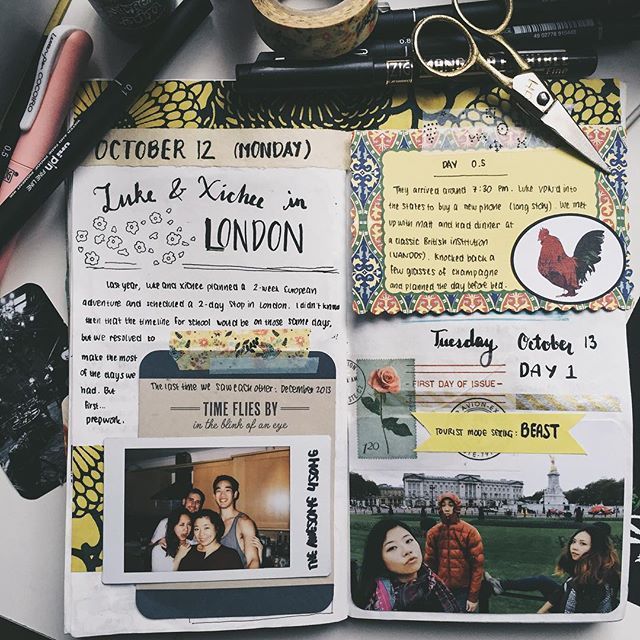 OCTOBER 12 (MONDAY)
Luke & Xichee in
LONDON
Last year, Luke and Xichee planned a 2-week European
adventure and scheduled a 2-day stop in London. I didn't know
then that the timeline for school would be on those same days,
but we resolved to
make the most
of the days we
had. But
first...
prepwork.
The last time we saw each other: December 2013
TIME FLIES BY
in the blink of an eye
THE AWESOME 4SOME
DAY 0.5
They arrived around 7:30 pm. Luke VPN'd into
the States to buy a new phone (long story). We met
up with Matt and had dinner at
a classic British institution
(NANDOS). Knocked back a
few glasses of champagne
and planned the day before bed.
Tuesday October 13
DAY 1
FIRST DAY OF ISSUE
AVION-EX
120
TOURIST MODE SETTING: BEAST
0.5
uni pin FINE LINE
0.8